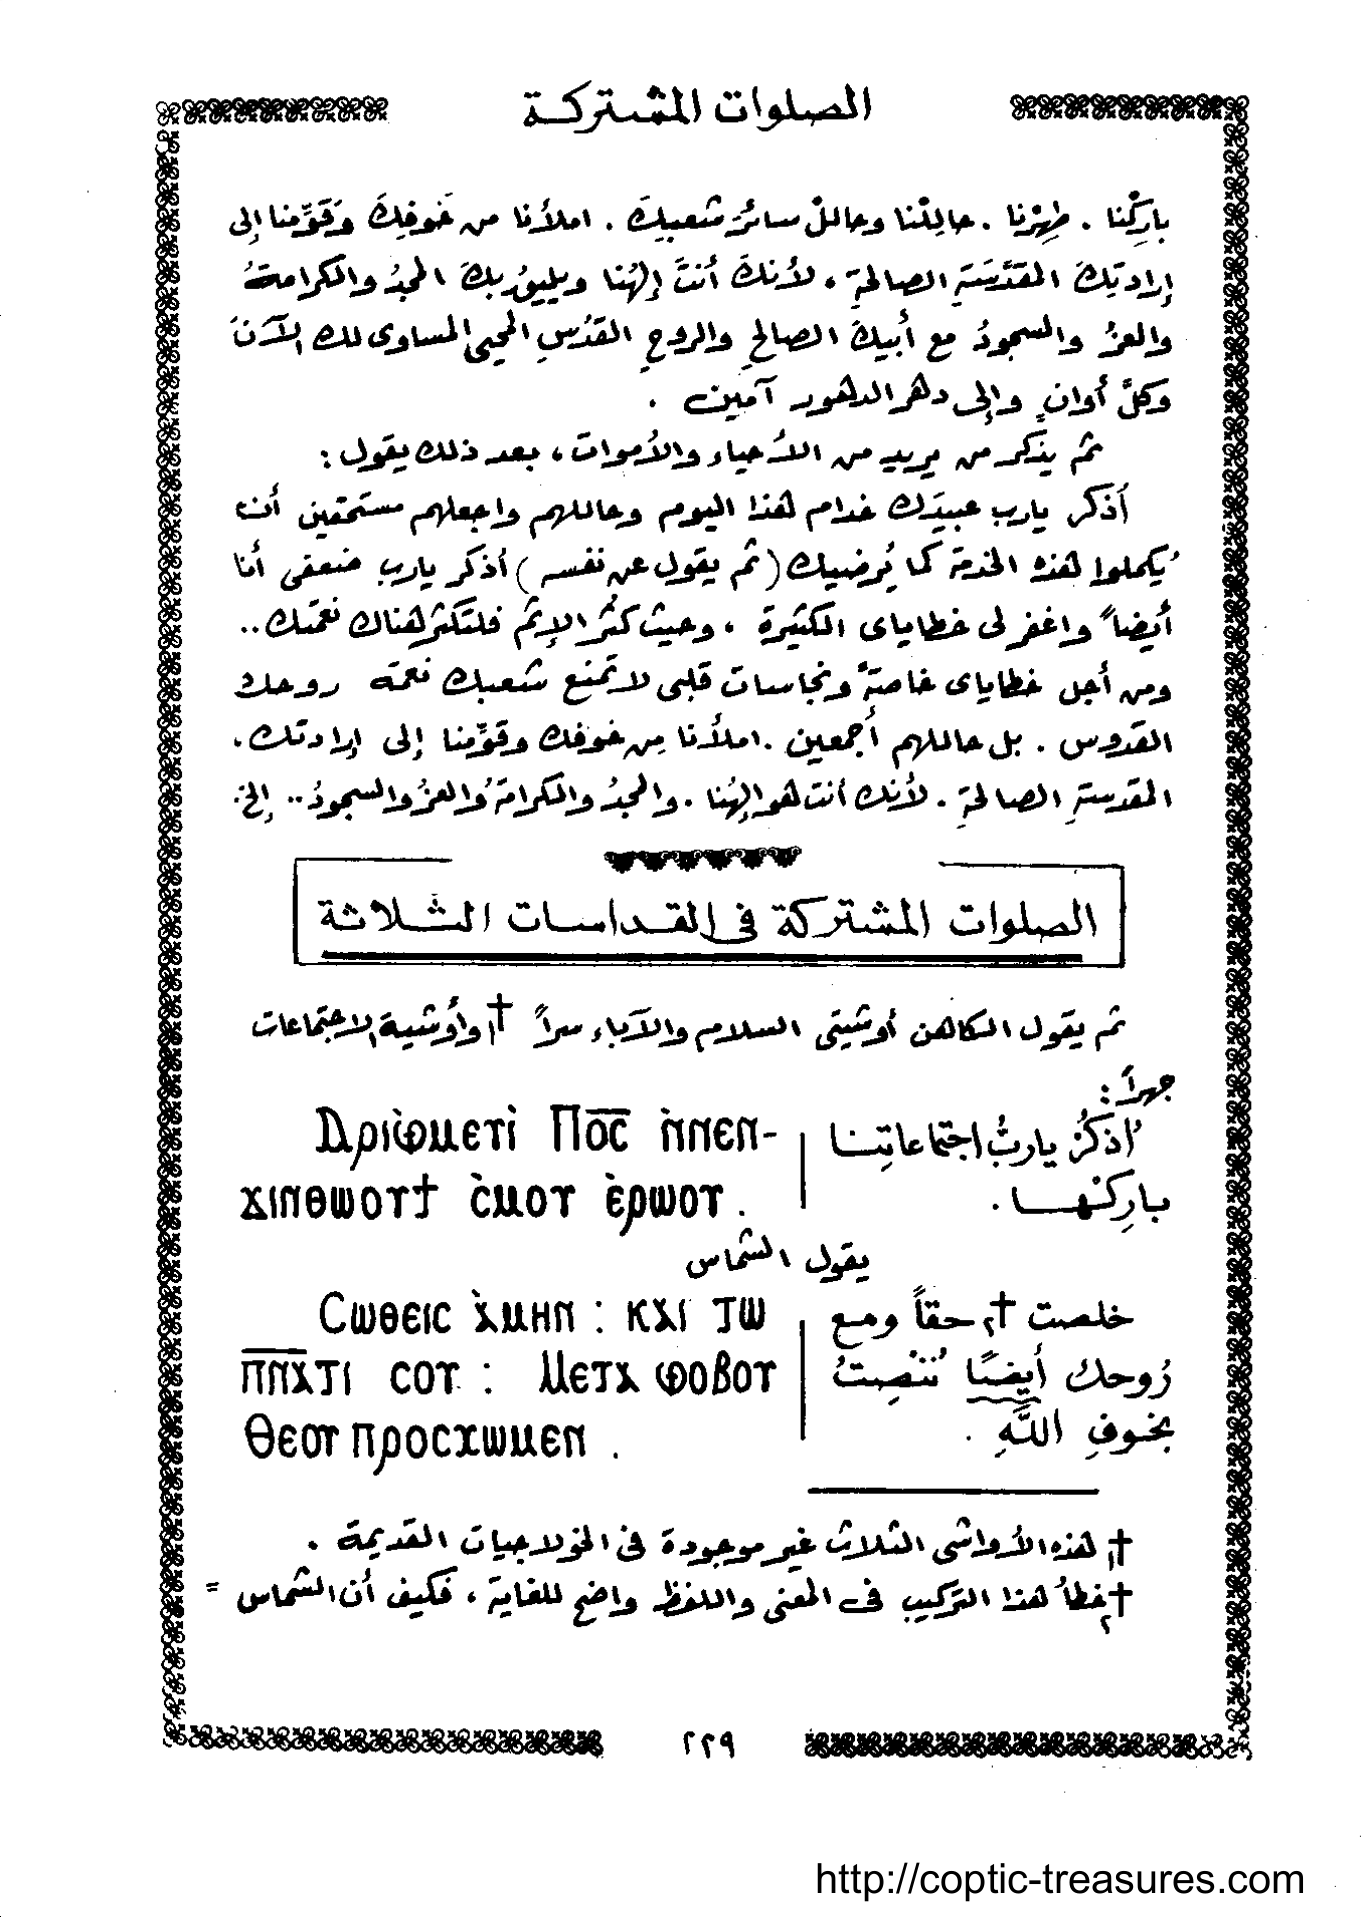 الصلوات المشتركة
باركْنا . طهِرْنا . حالِلْنا وحالل سائرَ شعبِكَ . املأنا من خَوفِكَ وَقَوِّمنا إلى
إرادتِكَ المقدَّسَةِ الصالحةِ ، لأنكَ أنتَ إلهُنا ويليقُ بكَ المجدُ والكرامةُ
والعزُ والسجودُ مع أبيكَ الصالحِ والروحِ القدُسِ المحيى المساوى لك الآنَ
وكلَّ أوانٍ وإلى دهر الدهور آمين .
ثم يذكر من يريد من الأحياء والأموات ، بعد ذلك يقول :
أذكر يارب عبيدَك خدام هذا اليوم وحاللهم واجعلهم مستحقين أن
يُكملوا هذه الخدمة كما يُرضيك ( ثم يقول عن نفسه ) أذكر يارب ضعفى أنا
أيضاً واغفر لى خطاياى الكثيرة ، وحيث كثُر الإثم فلتكثر هناك نعمتك ..
ومن أجل خطاياى خاصةً ونجاسات قلبى لا تمنع شعبك نعمة روحك
القدوس . بل حاللهم أجمعين . املأنا مِن خوفك وقوِّمنا إلى إرادتك ،
المقدسةِ الصالحةِ . لأنك أنت هو إلهُنا . والمجدُ والكرامةُ والعزُ والسجودُ .. إلخ .
الصلوات المشتركة فى القداسات الثلاثة
ثم يقول الكاهن أوشيتى السلام والآباء سراً †١ وأوشية الاجتماعات
جهراً :
Ⲁⲣⲓⲫ̀ⲙⲉⲩⲓ̀ Ⲡⲟ̅ⲥ̅ ⲛ̀ⲛⲉⲛ- أذكُرْ ياربُ اجتماعاتِنا
ϫⲓⲛⲑⲱⲟⲩϯ ⲥ̀ⲙⲟⲩ ⲉ̀ⲣⲱⲟⲩ . باركْها .
يقول الشماس
Ⲥⲱⲑⲉⲓⲥ ⲁ̀ⲙⲏⲛ : ⲕⲁⲓ ⲧⲱ خلصت †٢ حقاً ومع
ⲡ̅ⲛ̅ⲁ̅ⲧⲓ ⲥⲟⲩ : Ⲙⲉⲧⲁ ⲫⲟⲃⲟⲩ رُوحك أيضًا نُنْصِتُ
Ⲑⲉⲟⲩ ⲡⲣⲟⲥⲭⲱⲙⲉⲛ . بخوفِ اللَّهِ .
†١ هذه الأواشى الثلاث غير موجودة فى الخولاجيات القديمة .
†٢ خطأ هذا التركيب فى المعنى واللفظ واضح للغاية ، فكيف أن الشماس =
٢٢٩
http://coptic-treasures.com